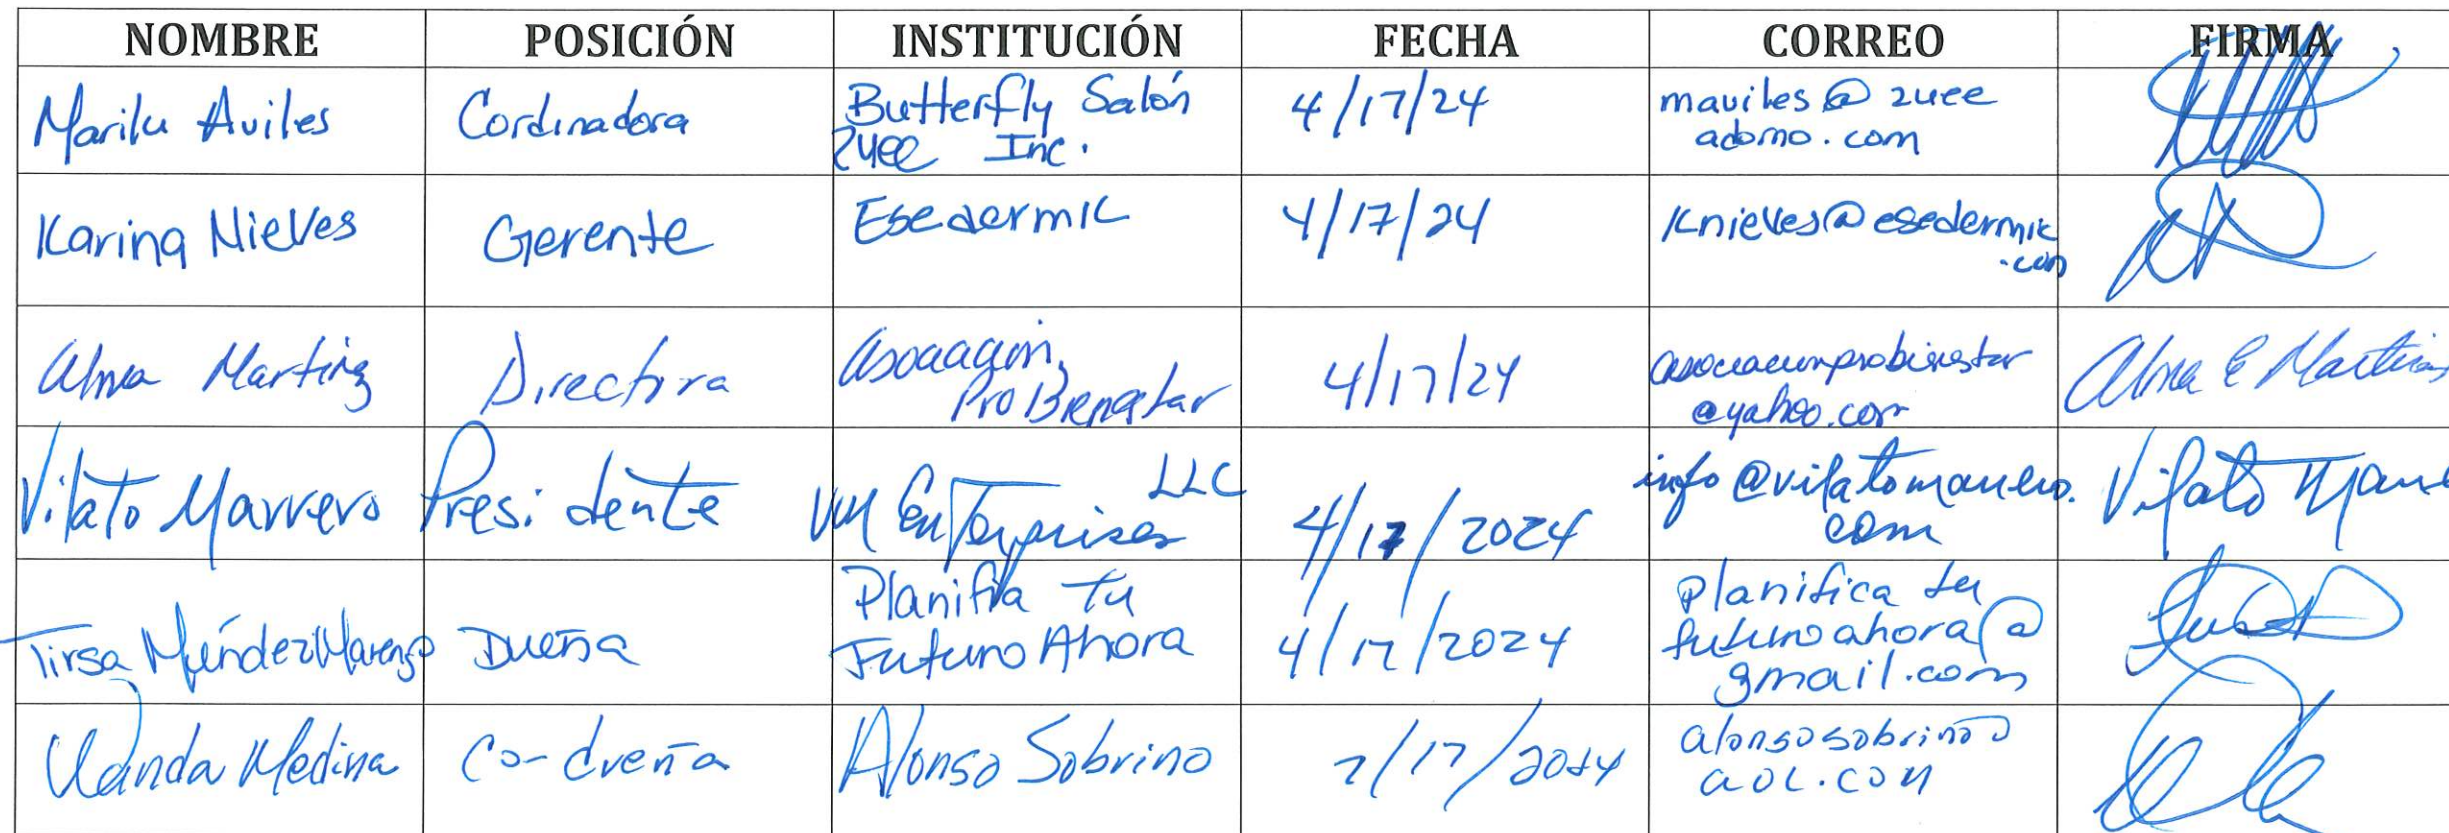 NOMBRE POSICIÓN INSTITUCIÓN FECHA CORREO FIRMA
Marilu Aviles Cordinadora Butterfly Salón 4/17/24 maviles@zuee
zuee Inc. adorno.com
Karina Nieves Gerente Esedermic 4/17/24 Knieves@esedermic
.com
Alma Martinez Directora Asociacion 4/17/24 asociacionprobienestar Alma E Martinez
Pro Bienestar @yahoo.com
Vilato Marrero Presidente VM Enterprises LLC 4/17/2024 info@vilatomarrero. Vilato
com
Tirsa Méndez Marengo Dueña Planifia Tu 4/17/2024 planifica tu
Futuro Ahora futuro ahora@
gmail.com
Wanda Medina Co-dueña Alonso Sobrino /17/2024 alonsosobrino@
aol.com